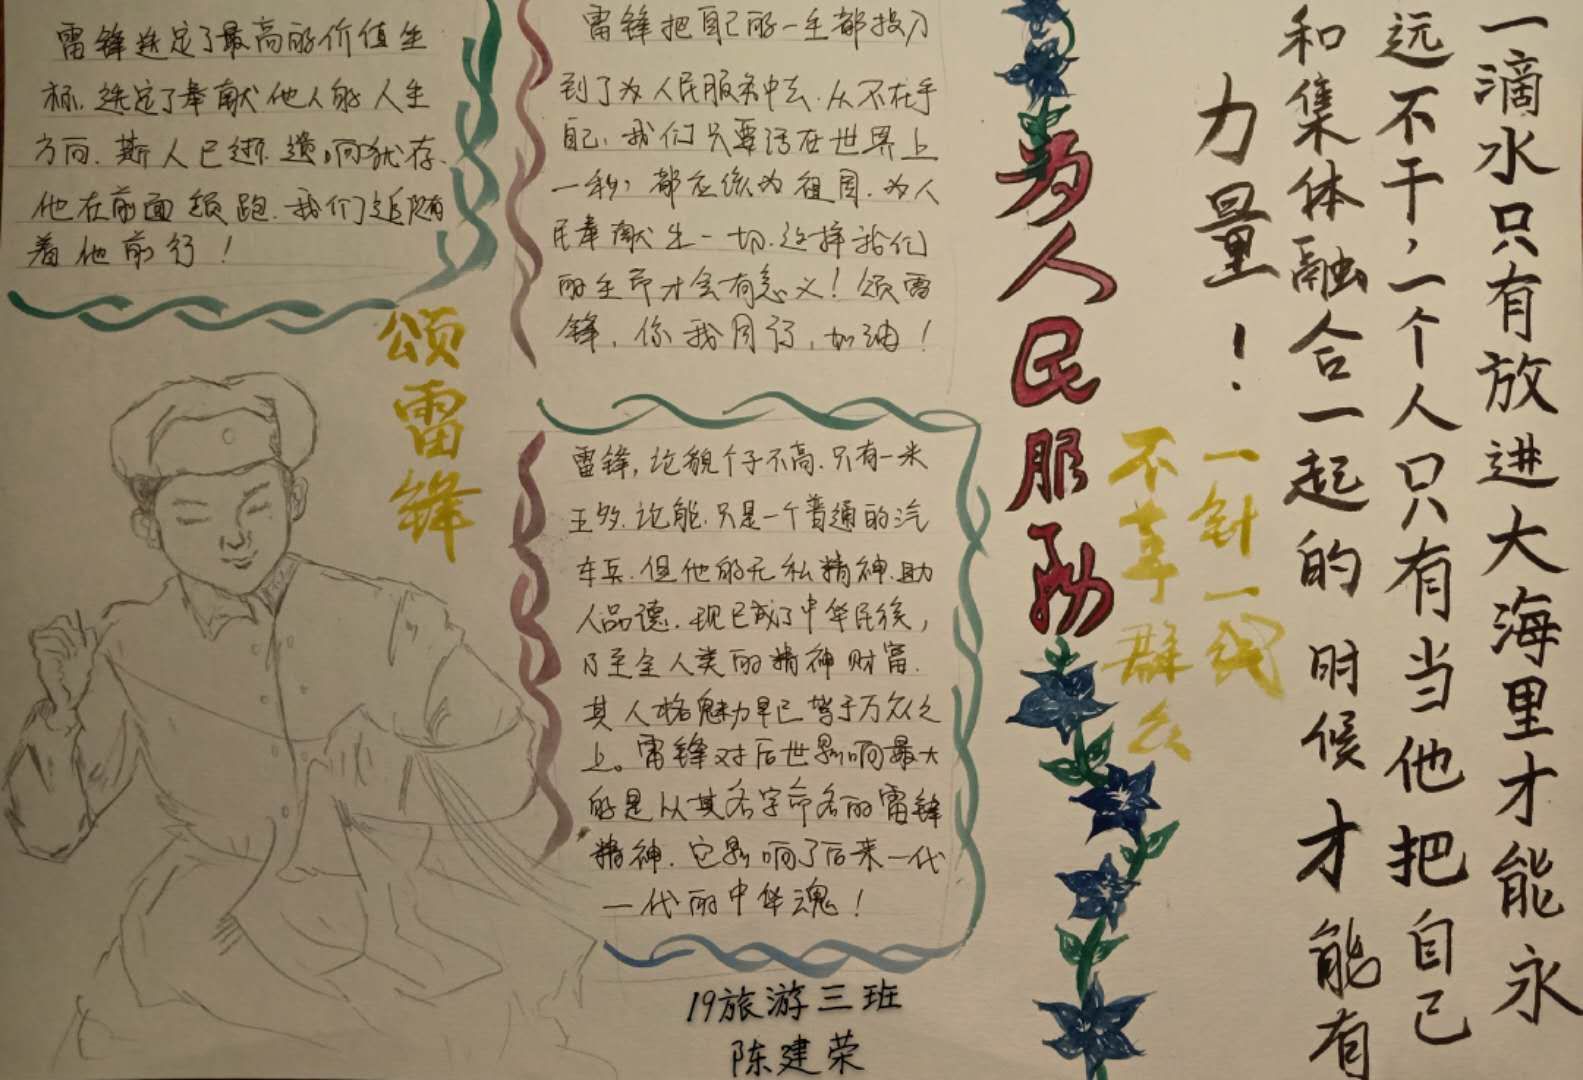 雷锋选定了最高的价值坐
标,选定了奉献他人的人生
方向.斯人已逝.遗响犹存.
他在前面领跑.我们追随
着他前行!
雷锋把自己的一生都投入
到了为人民服务中去.从不在乎
自己.我们只要活在世界上
一秒,都应该为祖国.为人
民奉献出一切.这样我们
的生命才会有意义!颂雷
锋.你我同行.加油!
颂雷锋
雷锋,论貌个子不高.只有一米
五多.论能.只是一个普通的汽
车兵.但他的无私精神.助
人品德.现已成了中华民族,
乃至全人类的精神财富.
其人格魅力早已誉于万众之
上。雷锋对后世影响最大
的是以其名字命名的雷锋
精神.它影响了后来一代
一代的中华魂!
19旅游三班
陈建荣
为人民服务
一滴水只有放进大海里才能永
远不干,一个人只有当他把自己
和集体融合一起的时候才能有
力量!
一针一线
不拿群众